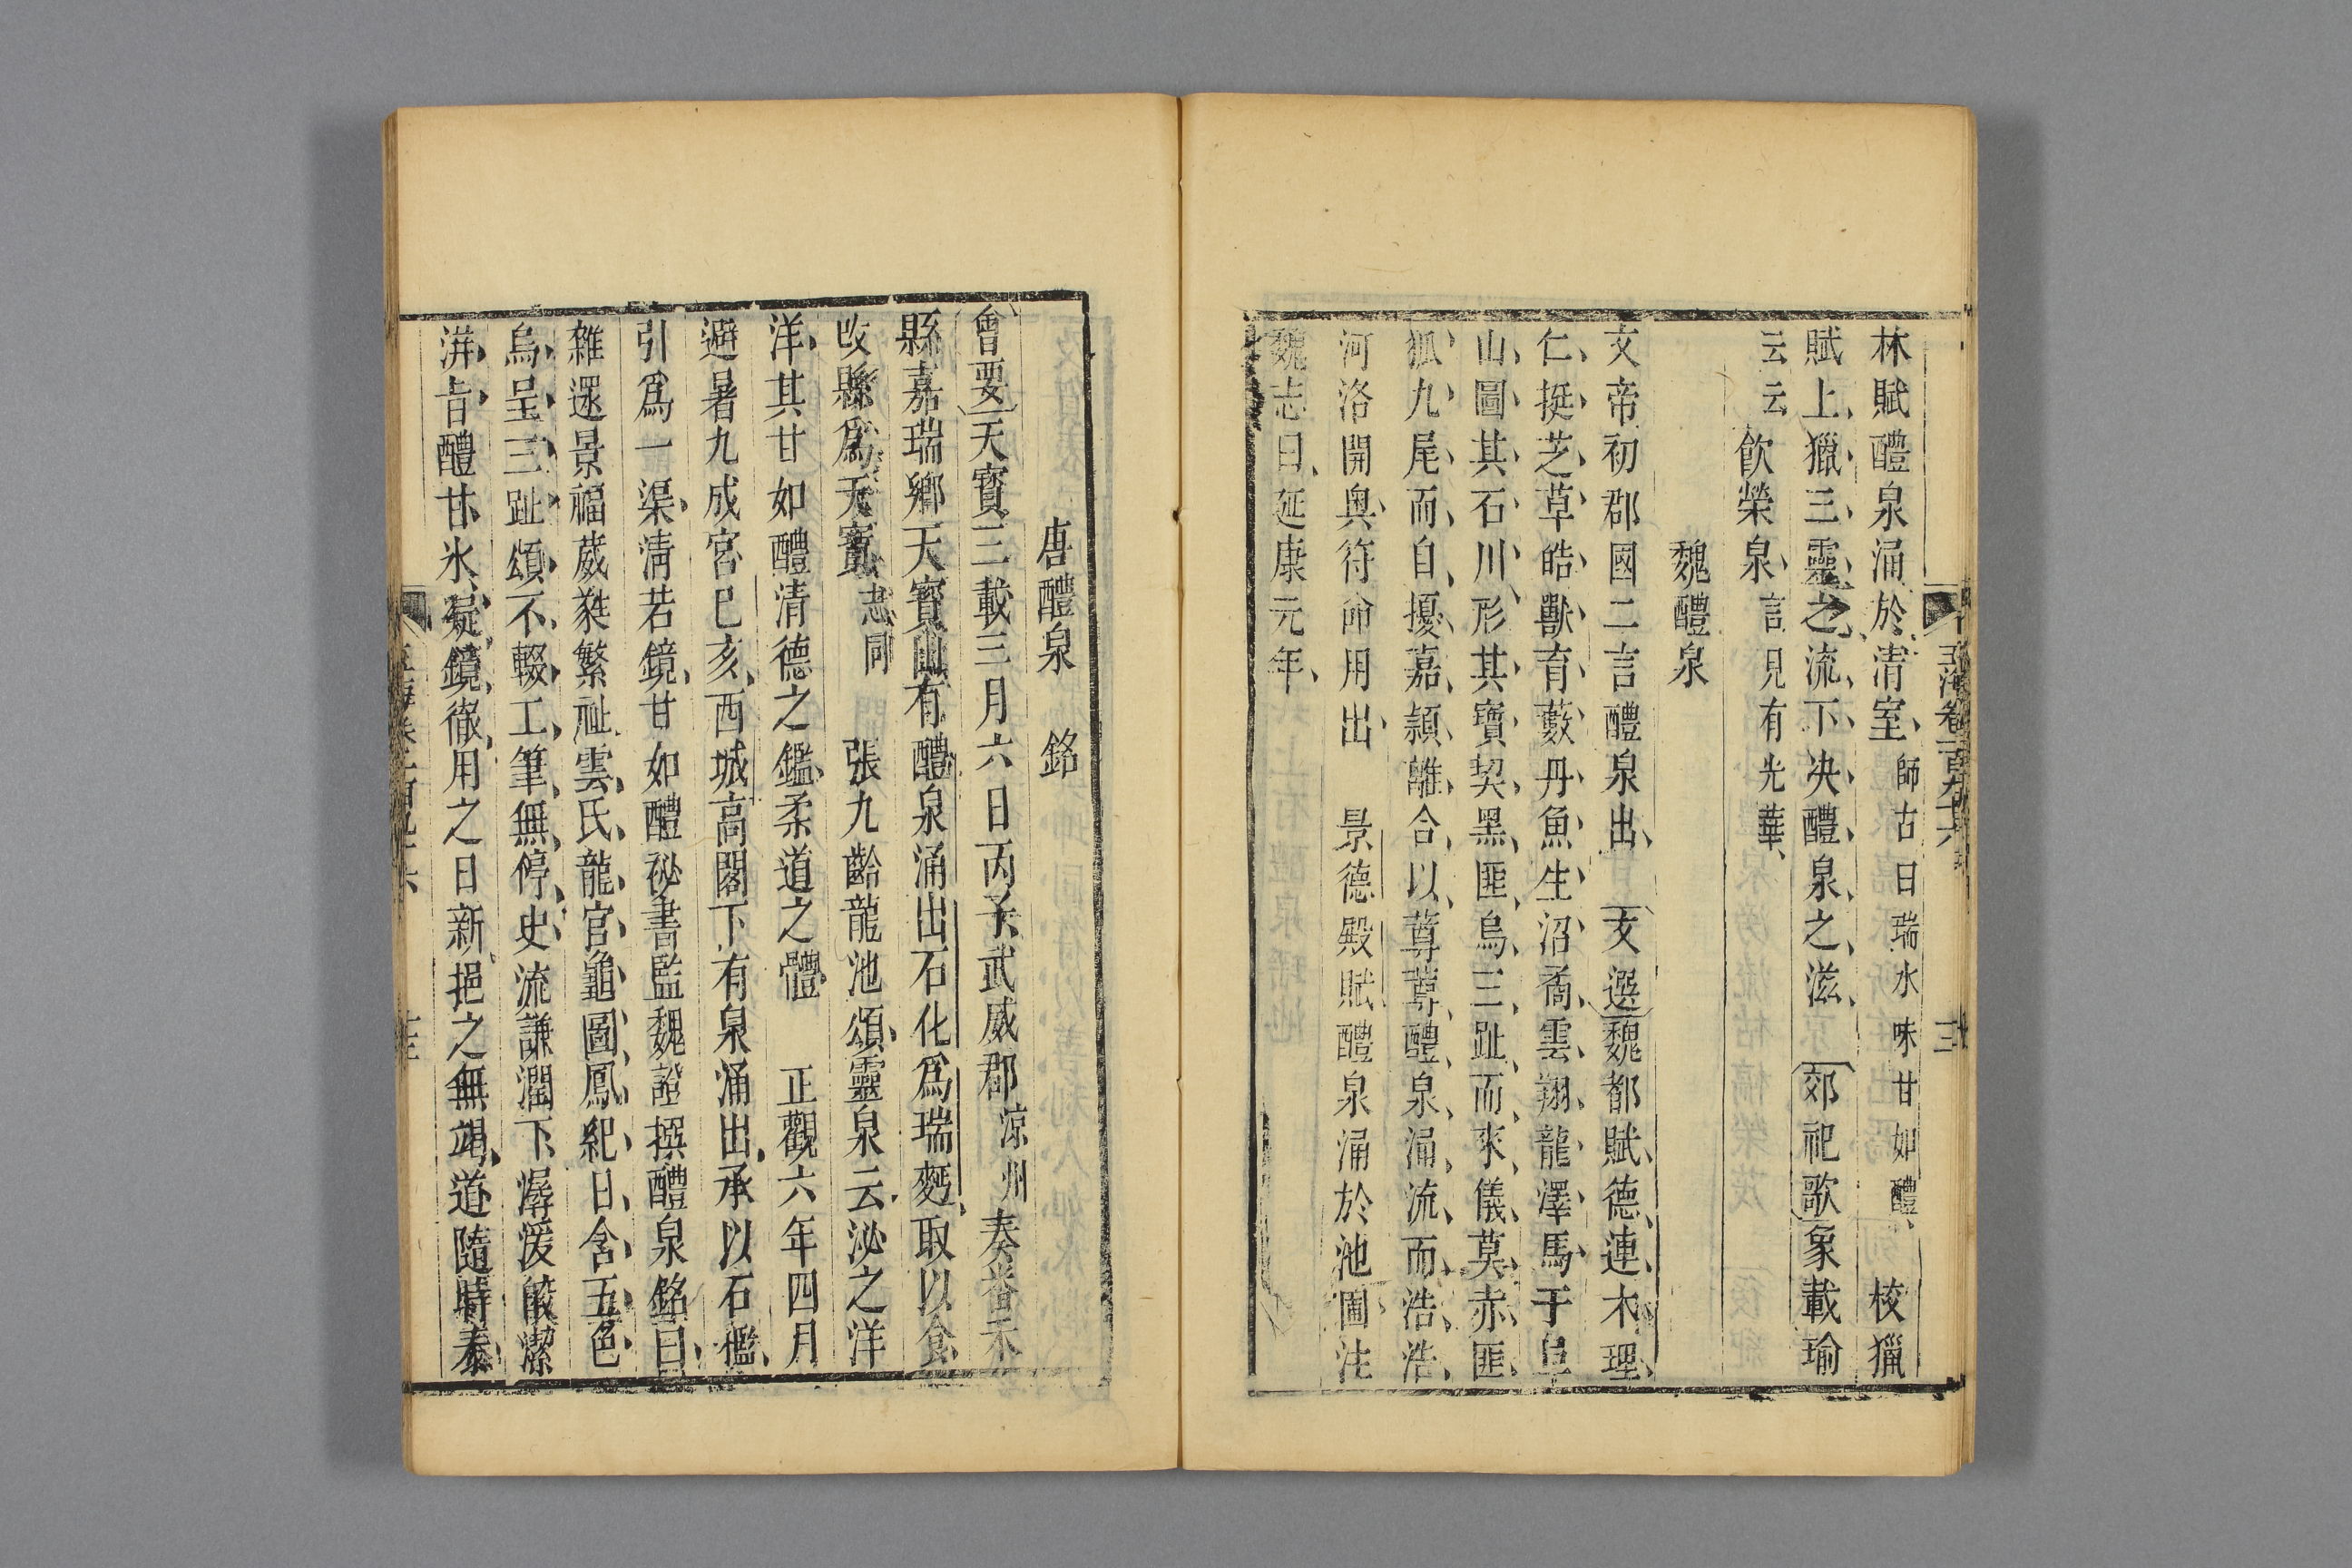 林賦醴泉涌於清室師古曰瑞水味甘如醴校獵
賦上獵三靈之流下决醴泉之滋郊祀歌象載瑜
云云飲榮泉言見有光華
魏醴泉
文帝初郡國二言醴泉出文選魏都賦德連木理
仁挺芝草皓獸育藪丹魚生沼矞雲翔龍澤馬于阜
山圖其石川形其寶契黑匪烏三趾而來儀莫赤匪
狐九尾而自擾嘉穎離合以蓴蓴醴泉涌流而浩浩
河洛開奥符命用出景德殿賦醴泉涌於池圃注
魏志曰延康元年
唐醴泉銘
會要天寶三載三月六日丙子武威郡涼州奏番禾
縣嘉瑞鄉天寶山有醴泉涌出石化爲瑞麫取以食
改縣爲天寶志同張九齡龍池頌靈泉云泌之洋
洋其甘如醴清德之鑑柔道之體正觀六年四月
避暑九成宮巳亥西城高閣下有泉涌出承以石檻
引爲一渠清若鏡甘如醴祕書監魏證撰醴泉銘曰
雜遝景福葳蕤繁祉雲氏龍官龜圖鳳紀日含五色
烏呈三趾頌不輟工筆無停史流謙潤下潺湲皎潔
湃旨醴甘氷凝鏡徹用之日新挹之無竭道隨時泰
玉海卷一百九十六